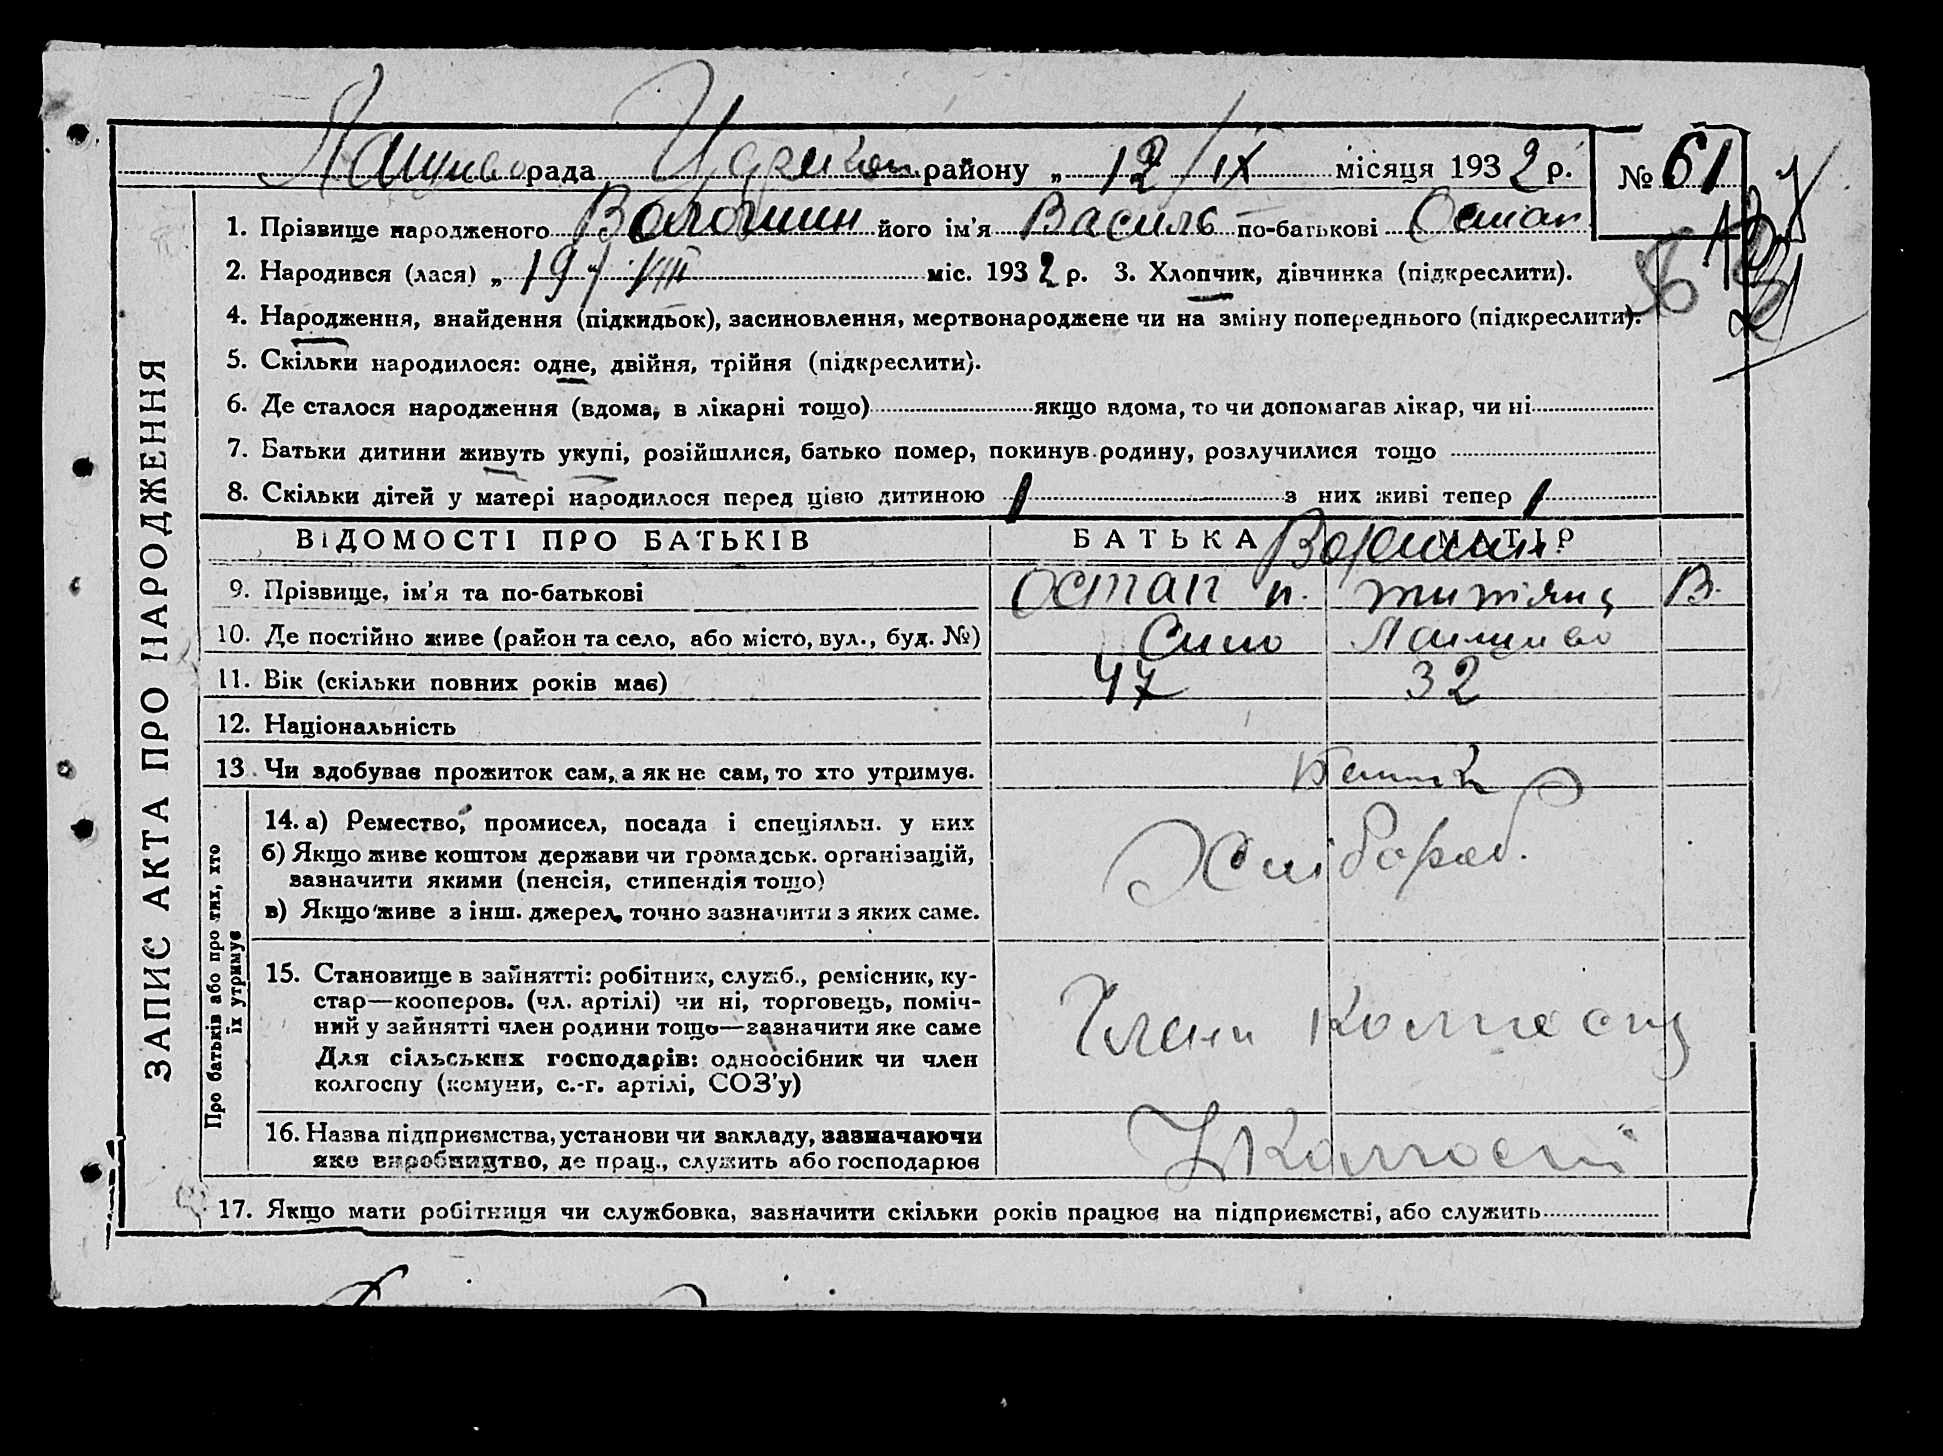 рада району „ 12/IX місяця 1932 р. № 61
1. Прізвище народженого Волошин його ім'я Василь по-батькові Остап
2. Народився (лася) „ 19 / VIII міс. 1932 р. 3. Хлопчик, дівчинка (підкреслити).
4. Народження, внайдення (підкидьок), засиновлення, мертвонароджене чи на зміну попереднього (підкреслити).
5. Скільки народилося: одне, двійня, трійня (підкреслити).
6. Де сталося народження (вдома, в лікарні тощо) якщо вдома, то чи допомагав лікар, чи ні
7. Батьки дитини живуть укупі, розійшлися, батько помер, покинув родину, розлучилися тощо
8. Скільки дітей у матері народилося перед цією дитиною 1 з них живі тепер 1
ЗАПИС АКТА ПРО НАРОДЖЕННЯ
ВІДОМОСТІ ПРО БАТЬКІВ БАТЬКА МАТІР
9. Прізвище, ім'я та по-батькові Остап п. В.
10. Де постійно живе (район та село, або місто, вул., буд. №)
11. Вік (скільки повних років має) 47 32
12. Національність
13. Чи вдобував прожиток сам, а як не сам, то хто утримує.
Про батьків або про тих, хто
їх утримує
14. а) Ремество, промисел, посада і спеціяльн. у них
б) Якщо живе коштом держави чи громадськ. організацій,
зазначити якими (пенсія, стипендія тощо)
в) Якщо живе з інш. джерел, точно зазначити з яких саме.
Хлібороб.
15. Становище в зайнятті: робітник, служб., ремісник, ку-
стар—кооперов. (чл. артілі) чи ні, торговець, поміч-
ний у зайнятті член родини тощо—зазначити яке саме
Для сільських господарів: одноосібник чи член
колгоспу (комуни, с.-г. артілі, СОЗ'у)
Члени колгоспу
16. Назва підприємства, установи чи вакладу, зазначаючи
яке виробництво, де прац., служить або господарює
У колгоспі
17. Якщо мати робітниця чи службовка, зазначити скільки років працює на підприємстві, або служить